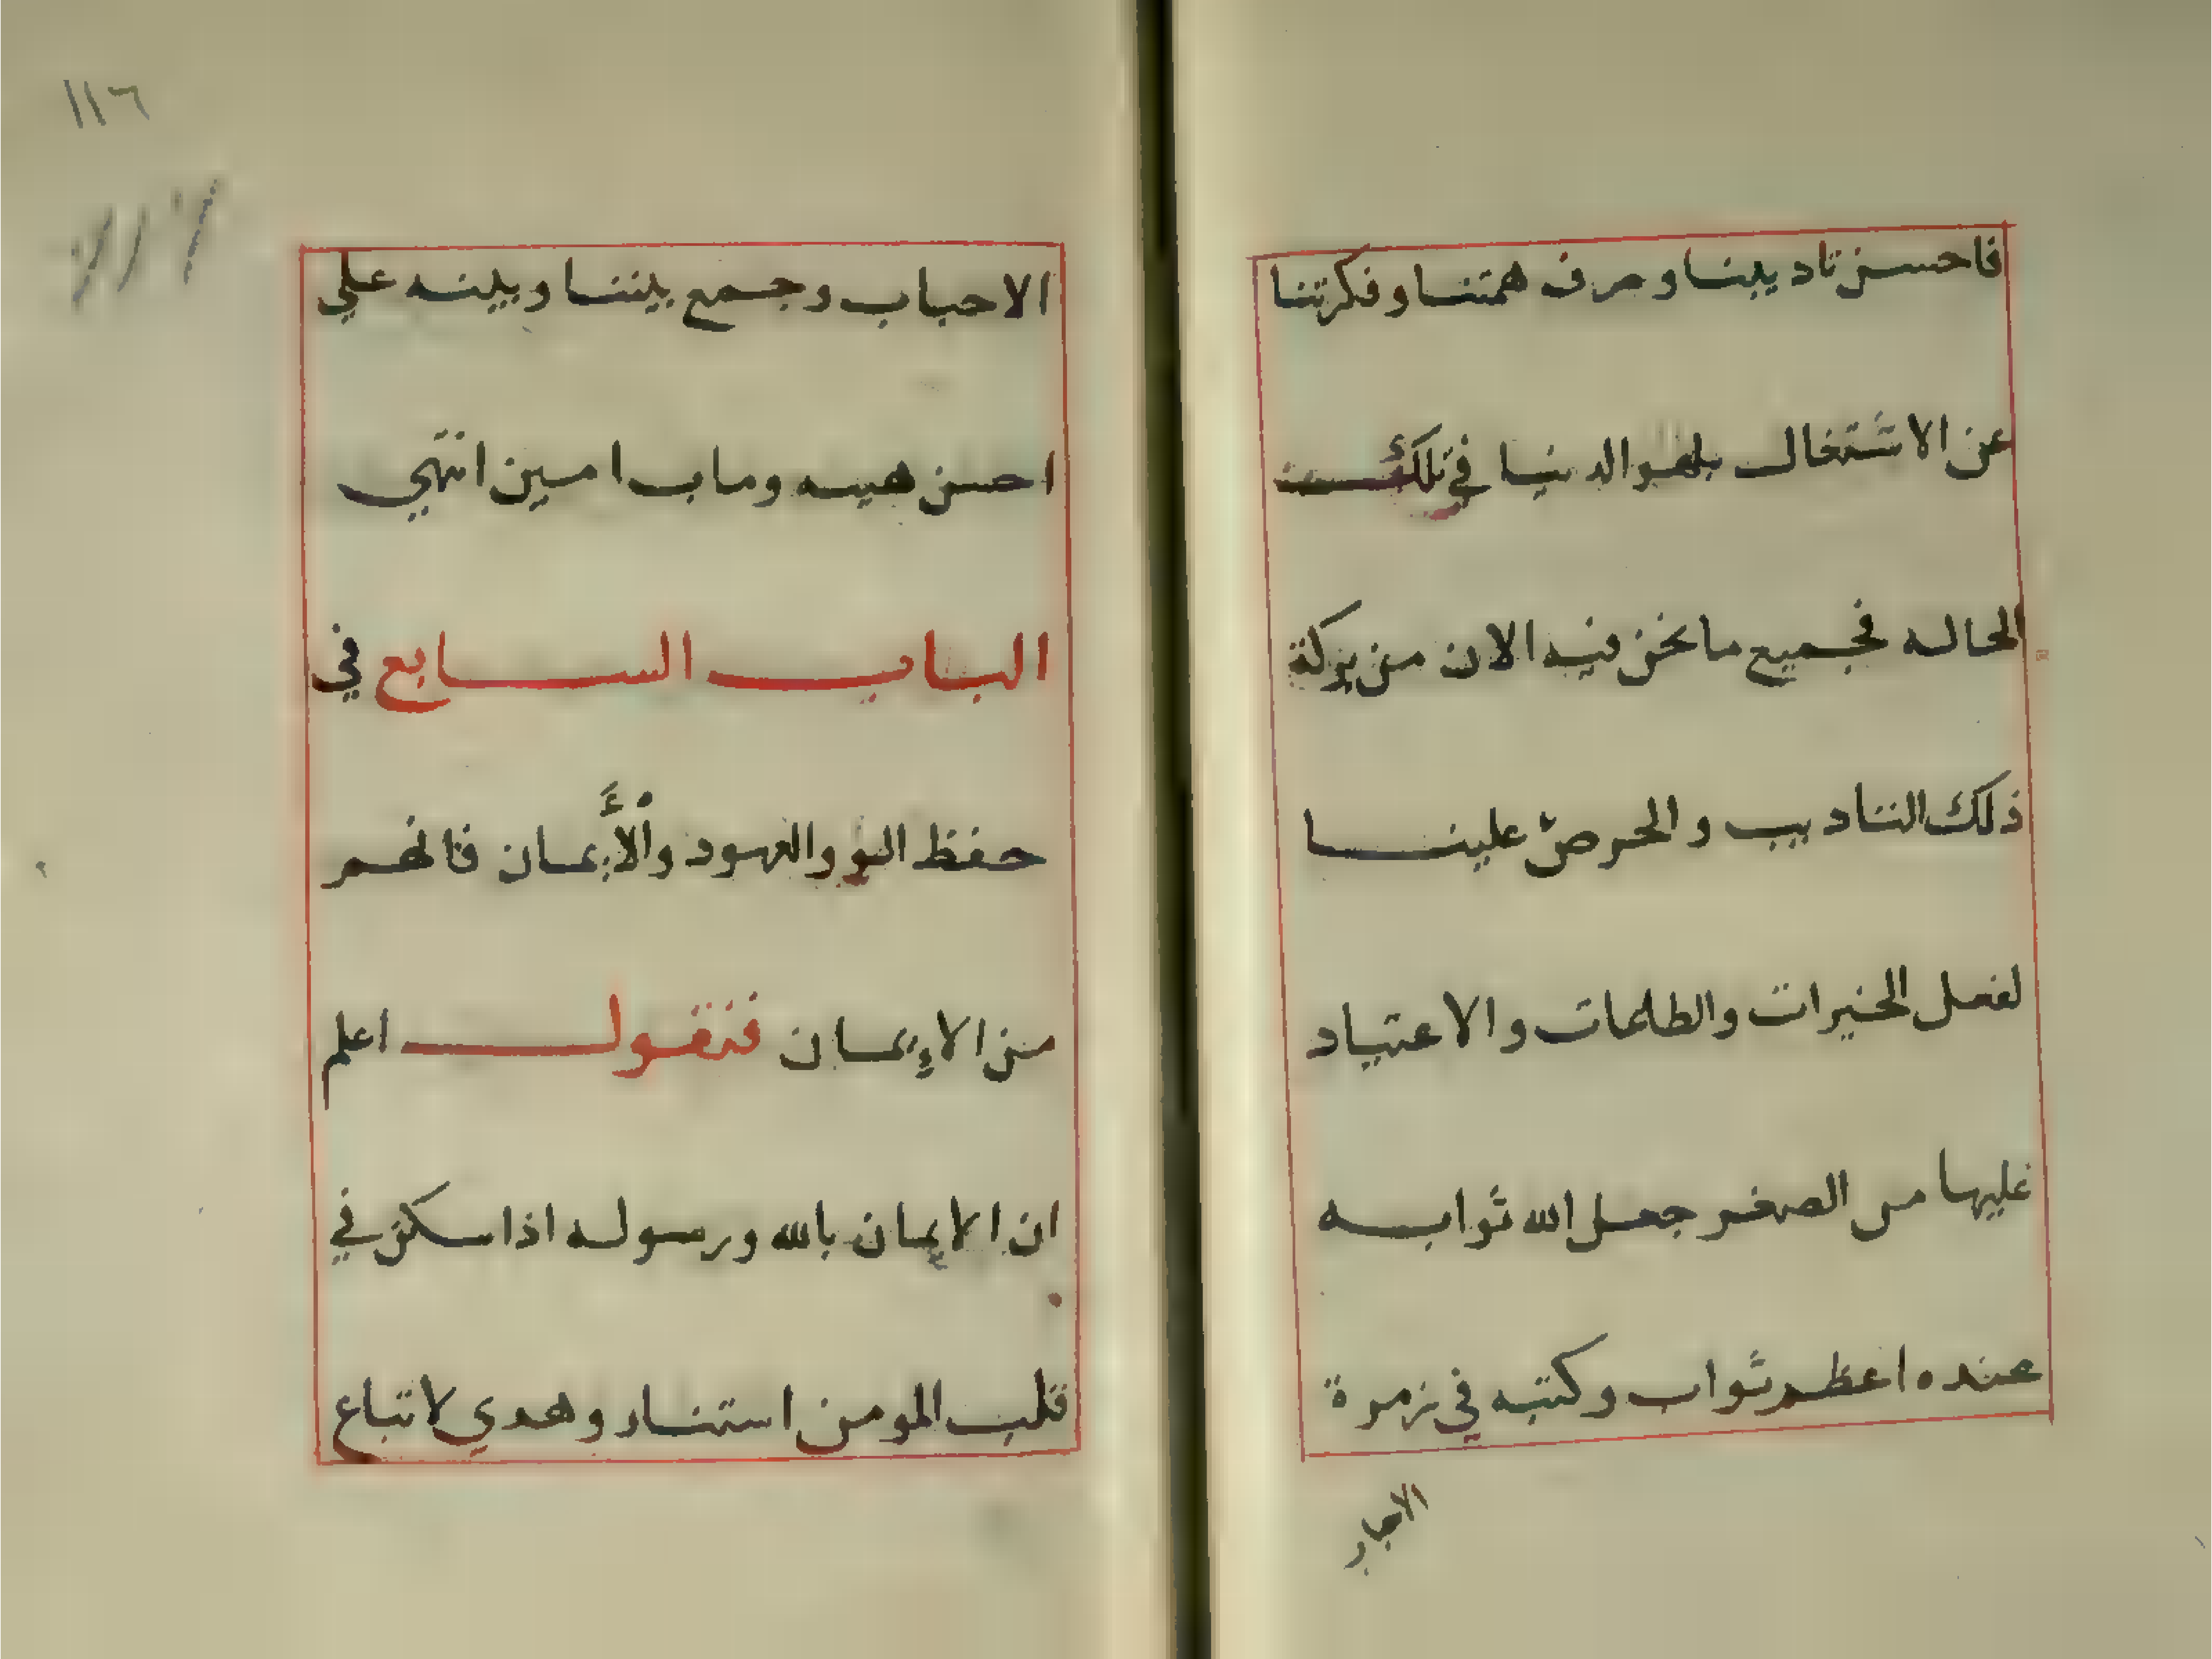 فاحسن تاديبنا وصرف همتنا وفكرتنا
عن الاشتغال بلهو الدنيا في تلك
الحاله فجميع ما نحن فيه الان من بركة
ذلك التاديب والحرص علينا
لفعل الخيرات والطاعات والاعتياد
عليها من الصغر جعل الله ثوابه
عنده اعظم ثواب وكتبه في زمرة
١١٦
الاحباب وجمع بيننا وبينه علي
احسن هيبه وماب امين انتهي
الباب السابع في
حفظ والعهود والأيمان فانهم
من الإيمان فنقول اعلم
ان الإيمان بالله ورسوله اذا سكن في
قلب المومن استنار وهدي لاتباع